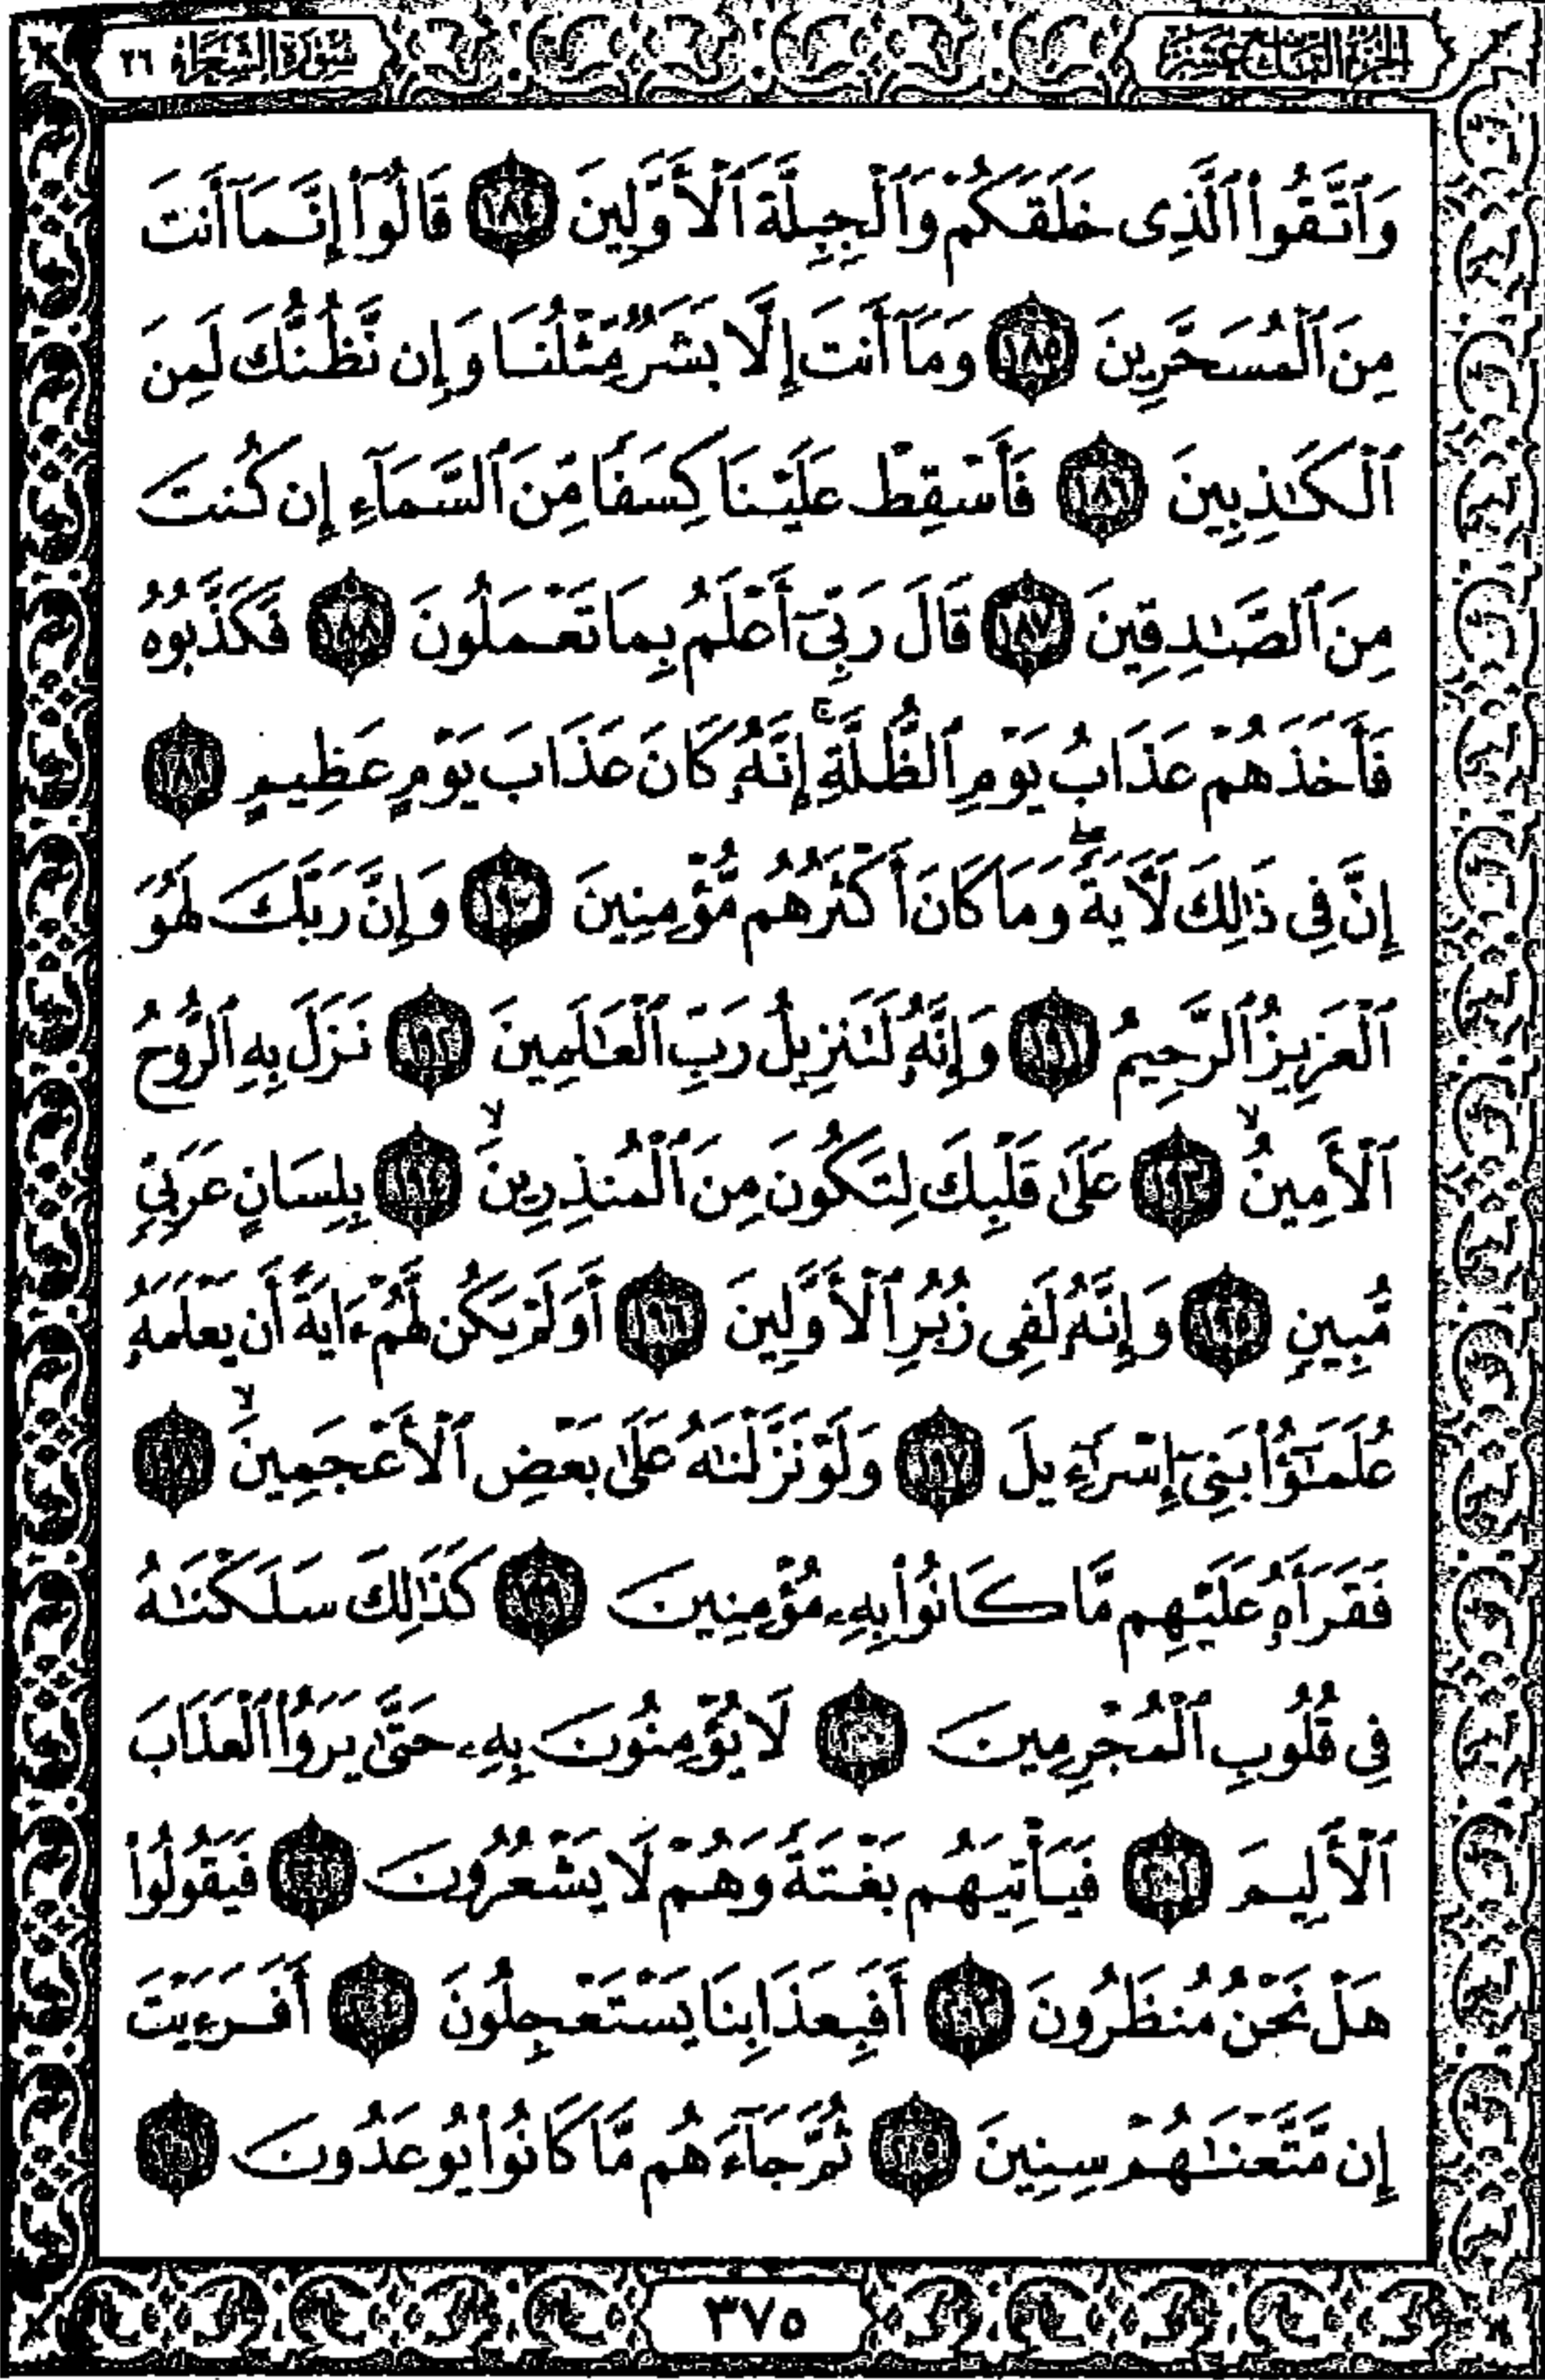 الجزء التاسع عشر
سورة الشعراء ٢٦
وَٱتَّقُوا۟ ٱلَّذِى خَلَقَكُمْ وَٱلْجِبِلَّةَ ٱلْأَوَّلِينَ ١٨٤ قَالُوٓا۟ إِنَّمَآ أَنتَ
مِنَ ٱلْمُسَحَّرِينَ ١٨٥ وَمَآ أَنتَ إِلَّا بَشَرٌ مِّثْلُنَا وَإِن نَّظُنُّكَ لَمِنَ
ٱلْكَـٰذِبِينَ ١٨٦ فَأَسْقِطْ عَلَيْنَا كِسَفًا مِّنَ ٱلسَّمَآءِ إِن كُنتَ
مِنَ ٱلصَّـٰدِقِينَ ١٨٧ قَالَ رَبِّىٓ أَعْلَمُ بِمَا تَعْمَلُونَ ١٨٨ فَكَذَّبُوهُ
فَأَخَذَهُمْ عَذَابُ يَوْمِ ٱلظُّلَّةِ ۚ إِنَّهُۥ كَانَ عَذَابَ يَوْمٍ عَظِيمٍ ١٨٩
إِنَّ فِى ذَٰلِكَ لَـَٔايَةً ۖ وَمَا كَانَ أَكْثَرُهُم مُّؤْمِنِينَ ١٩٠ وَإِنَّ رَبَّكَ لَهُوَ
ٱلْعَزِيزُ ٱلرَّحِيمُ ١٩١ وَإِنَّهُۥ لَتَنزِيلُ رَبِّ ٱلْعَـٰلَمِينَ ١٩٢ نَزَلَ بِهِ ٱلرُّوحُ
ٱلْأَمِينُ ۙ ١٩٣ عَلَىٰ قَلْبِكَ لِتَكُونَ مِنَ ٱلْمُنذِرِينَ ۙ ١٩٤ بِلِسَانٍ عَرَبِىٍّ
مُّبِينٍ ١٩٥ وَإِنَّهُۥ لَفِى زُبُرِ ٱلْأَوَّلِينَ ١٩٦ أَوَلَمْ يَكُن لَّهُمْ ءَايَةً أَن يَعْلَمَهُۥ
عُلَمَـٰٓؤُا۟ بَنِىٓ إِسْرَٰٓءِيلَ ١٩٧ وَلَوْ نَزَّلْنَـٰهُ عَلَىٰ بَعْضِ ٱلْأَعْجَمِينَ ۙ ١٩٨
فَقَرَأَهُۥ عَلَيْهِم مَّا كَانُوا۟ بِهِۦ مُؤْمِنِينَ ١٩٩ كَذَٰلِكَ سَلَكْنَـٰهُ
فِى قُلُوبِ ٱلْمُجْرِمِينَ ٢٠٠ لَا يُؤْمِنُونَ بِهِۦ حَتَّىٰ يَرَوُا۟ ٱلْعَذَابَ
ٱلْأَلِيمَ ٢٠١ فَيَأْتِيَهُم بَغْتَةً وَهُمْ لَا يَشْعُرُونَ ٢٠٢ فَيَقُولُوا۟
هَلْ نَحْنُ مُنظَرُونَ ٢٠٣ أَفَبِعَذَابِنَا يَسْتَعْجِلُونَ ٢٠٤ أَفَرَءَيْتَ
إِن مَّتَّعْنَـٰهُمْ سِنِينَ ٢٠٥ ثُمَّ جَآءَهُم مَّا كَانُوا۟ يُوعَدُونَ ٢٠٦
٣٧٥